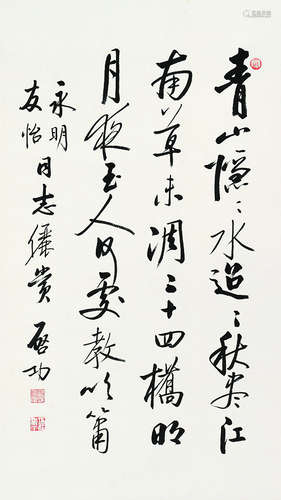 青山隐〻水迢〻秋尽江
南草未凋二十四橋明
月夜玉人何處教吹簫
永明
友怡同志儷賞 启功